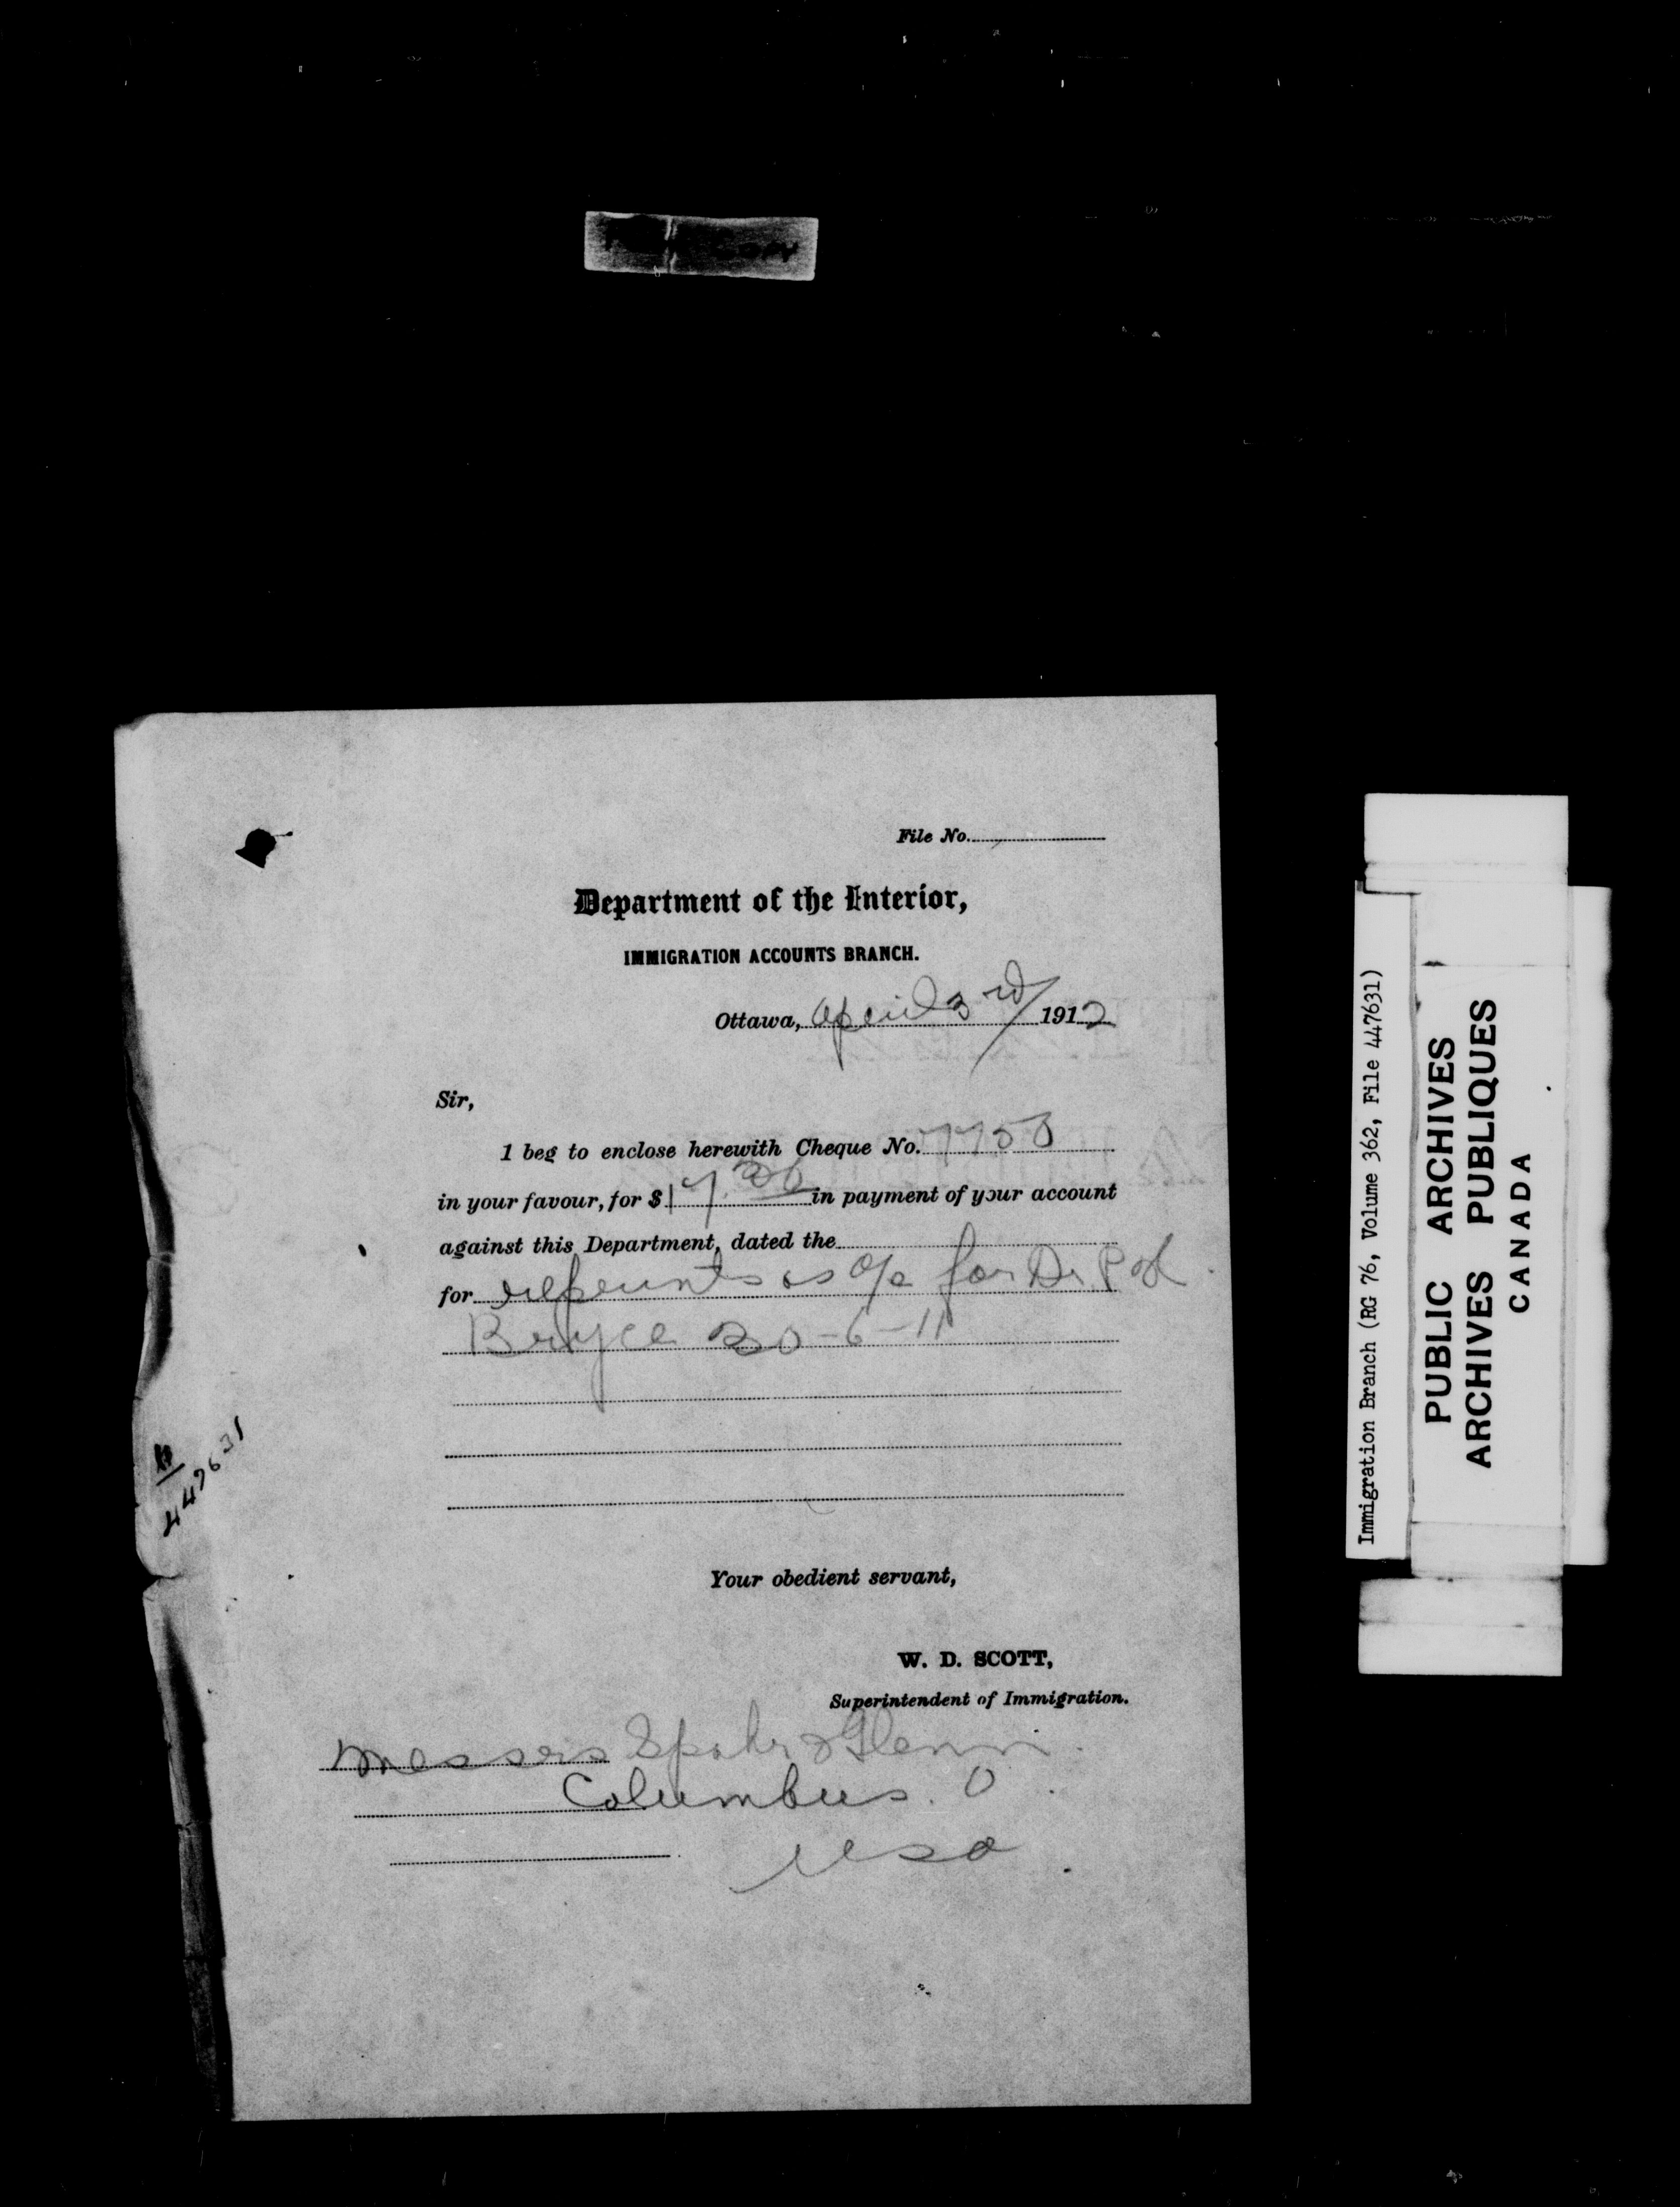 File No.
Department of the Interior,
IMMIGRATION ACCOUNTS BRANCH.
Ottawa, April 3rd 1912
Sir,
I beg to enclose herewith Cheque No. 7758
in your favour, for $17. in payment of your account
against this Department, dated the
for reprints as a/c for Dr. P H
Bryce 30-6-11
Your obedient servant,
W. D. SCOTT,
Superintendent of Immigration.
Messers Spahr & Glenn.
Columbus. O.
USA
447631
Immigration Branch (RG 76, Volume 362, File 447631)
PUBLIC ARCHIVES
ARCHIVES PUBLIQUES
CANADA